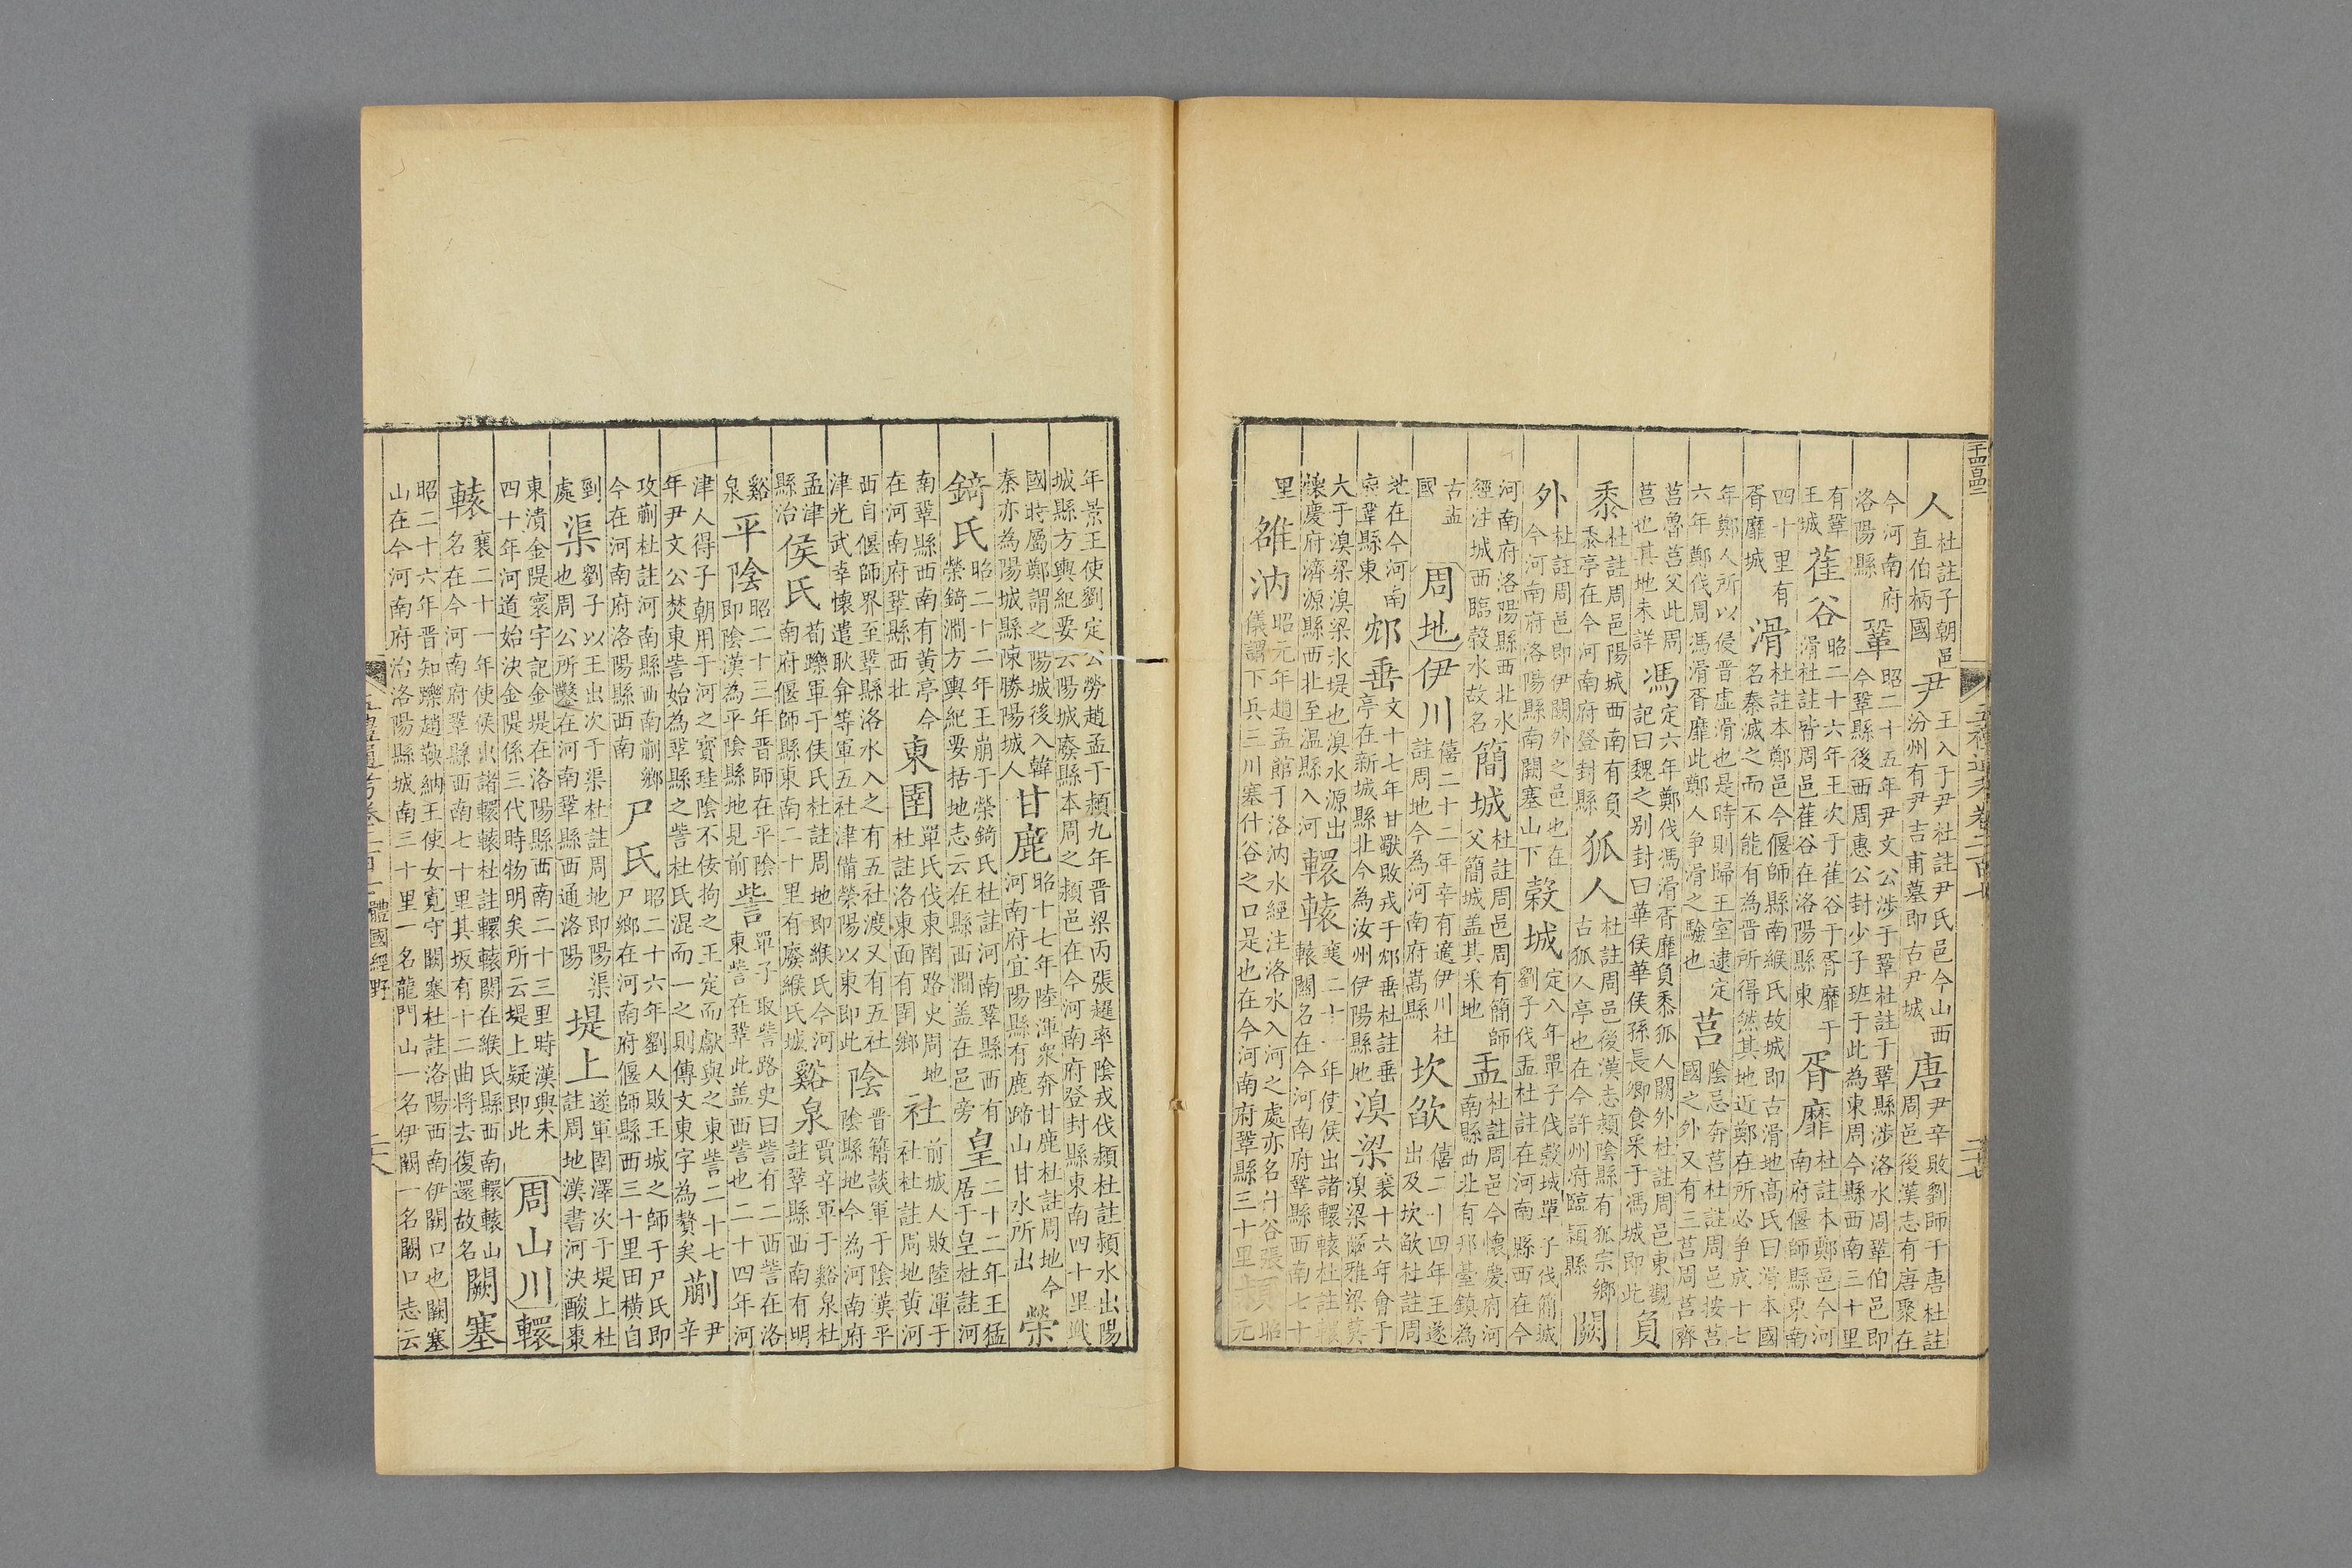 千四百四二
人
杜註子朝邑
直伯柄國
尹
王入于尹杜註尹氏邑今山西
汾州有尹吉甫墓即古尹城
唐
尹辛敗劉師于唐杜註
周邑後漢志有唐聚在
今河南府
洛陽縣
鞏
昭二十五年尹文公涉于鞏杜註于鞏縣涉洛水周鞏伯邑即
今鞏縣後西周惠公封少子班于此為東周今縣西南三十里
有鞏
王城
萑谷
昭二十六年王次于萑谷于胥靡于
滑杜註皆周邑萑谷在洛陽縣東
胥靡
杜註本鄭邑今河
南府偃師縣東南
四十里有
胥靡城
滑
杜註本鄭邑今偃師縣南緱氏故城即古滑地高氏曰滑本國
名秦滅之而不能有為晉所得然其地近鄭在所必爭成十七
年鄭人所以侵晉虛滑也是時則歸王室逮定
六年鄭伐周馮滑胥靡此鄭人爭滑之驗也
莒
陰忌奔莒杜註周邑按莒
國之外又有三莒周莒齊
莒魯莒父此周
莒也其地未詳
馮
定六年鄭伐馮滑胥靡負黍狐人闕外杜註周邑東觀
記曰魏之别封曰華侯華侯孫長卿食采于馮城即此
負
黍
杜註周邑陽城西南有負
黍亭在今河南府登封縣
狐人
杜註周邑後漢志潁陰縣有狐宗鄉
古狐人亭也在今許州府臨潁縣
闕
外
杜註周邑即伊闕外之邑也在
今河南府洛陽縣南闕塞山下
穀城
定八年單子伐穀城單子伐簡城
劉子伐盂杜註在河南縣西在今
河南府洛陽縣西北水
經注城西臨穀水故名
簡城
杜註周邑周有簡師
父簡城盖其采地
盂
杜註周邑今懷慶府河
南縣西北有邘臺鎮為
古盂
國
周地
伊川
僖二十二年辛有適伊川杜
註周地今為河南府嵩縣
坎欿
僖二十四年王遂
出及坎欿杜註周
地在今河南
府鞏縣東
邥垂
文十七年甘歜敗戎于邥垂杜註垂
亭在新城縣北今為汝州伊陽縣地
溴梁
襄十六年會于
溴梁爾雅梁莫
大于溴梁溴梁水堤也溴水源出
懷慶府濟源縣西北至温縣入河
轘轅
襄二十一年使侯出諸轘轅杜註轘
轅關名在今河南府鞏縣西南七十
里
雒汭
昭元年趙孟館于洛汭水經注洛水入河之處亦名什谷張
儀謂下兵三川塞什谷之口是也在今河南府鞏縣三十里
潁
昭
元
五禮通考卷二百十
二十七
年景王使劉定公勞趙孟于潁九年晉梁丙張趯率陰戎伐潁杜註潁水出陽
城縣方輿紀要云陽城廢縣本周之潁邑在今河南府登封縣東南四十里戰
國時屬鄭謂之陽城後入韓
秦亦為陽城縣陳勝陽城人
甘鹿
昭十七年陸渾衆奔甘鹿杜註周地今
河南府宜陽縣有鹿蹄山甘水所出
榮
錡氏
昭二十二年王崩于榮錡氏杜註河南鞏縣西有
榮錡澗方輿紀要括地志云在縣西澗盖在邑旁
皇
二十二年王猛
居于皇杜註河
南鞏縣西南有黄亭今
在河南府鞏縣西北
東圉
單氏伐東圉路史周地
杜註洛東面有圉鄉
社
前城人敗陸渾于
社杜註周地黄河
西自偃師界至鞏縣洛水入之有五社渡又有五社
津光武幸懷遣耿弇等軍五社津備榮陽以東即此
陰
晉籍談軍于陰漢平
陰縣地今為河南府
孟津
縣治
侯氏
荀躒軍于侯氏杜註周地即緱氏今河
南府偃師縣東南二十里有廢緱氏城
谿泉
賈辛軍于谿泉杜
註鞏縣西南有明
谿
泉
平陰
昭二十三年晉師在平陰
即陰漢為平陰縣地見前
訾
單子取訾路史曰訾有二西訾在洛
東訾在鞏此盖西訾也二十四年河
津人得子朝用于河之寳珪陰不佞拘之王定而獻與之東訾二十七
年尹文公焚東訾始為鞏縣之訾杜氏混而一之則傳文東字為贅矣
蒯
尹
辛
攻蒯杜註河南縣西南蒯鄉
今在河南府洛陽縣西南
尸氏
昭二十六年劉人敗王城之師于尸氏即
尸鄉在河南府偃師縣西三十里田横自
剄
處
渠
劉子以王出次于渠杜註周地即陽渠
也周公所鑿在河南鞏縣西通洛陽
堤上
遂軍圉澤次于堤上杜
註周地漢書河決酸棗
東潰金隄寰宇記金堤在洛陽縣西南二十三里時漢興未
四十年河道始決金隄係三代時物明矣所云堤上疑即此
周山川
轘
轅
襄二十一年使侯出諸轘轅杜註轘轅關在緱氏縣西南轘轅山
名在今河南府鞏縣西南七十里其坂有十二曲將去復還故名
闕塞
昭二十六年晉知躒趙鞅納王使女寬守闕塞杜註洛陽西南伊闕口也闕塞
山在今河南府治洛陽縣城南三十里一名龍門山一名伊闕一名闕口志云
五禮通考卷二百十
體國經野
二八